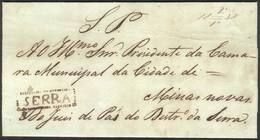 S. P.
Ao Illmo Snr. Prezidente da Cama
ra Municipal da Cidade de =
Minas novas
SERRA
Do Juiz de Pás do Distr. da Serra